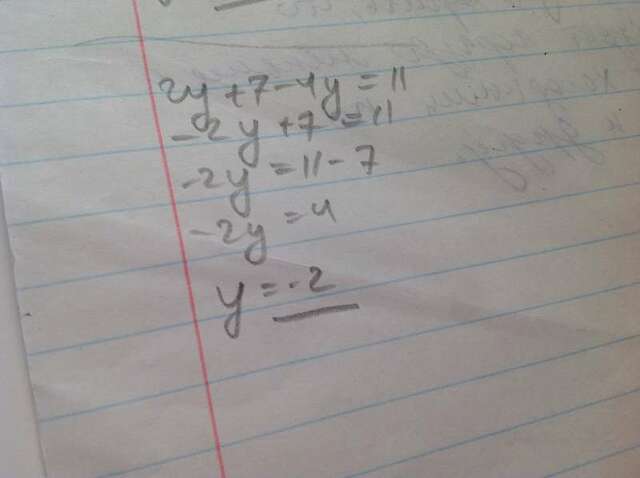 2y+7-4y=11
-2y+7=11
-2y=11-7
-2y=4
y=-2